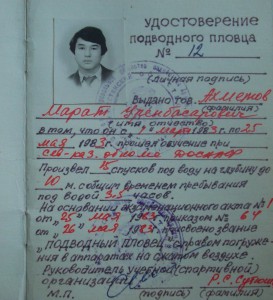 УДОСТОВЕРЕНИЕ
ПОДВОДНОГО ПЛОВЦА
№ 12
(личная подпись)
Выдано тов. Ахметов
(фамилия)
Марат
(имя, отчество)
в том, что он с 1983 г. по 25
мая 1983 г. прошел обучение при
ДОСААФ
Произвел 25 спусков под воду на глубину до
10 м. с общим временем пребывания
под водой часов.
На основании акта № 1
от "25" мая 1983 приказом № 64
от "26" мая 1983 присвоено звание
"ПОДВОДНЫЙ ПЛОВЕЦ" с правом погруже-
ния в аппаратах на сжатом воздухе.
Руководитель учебной (спортивной)
организации
М.П. (подпись) (фамилия)